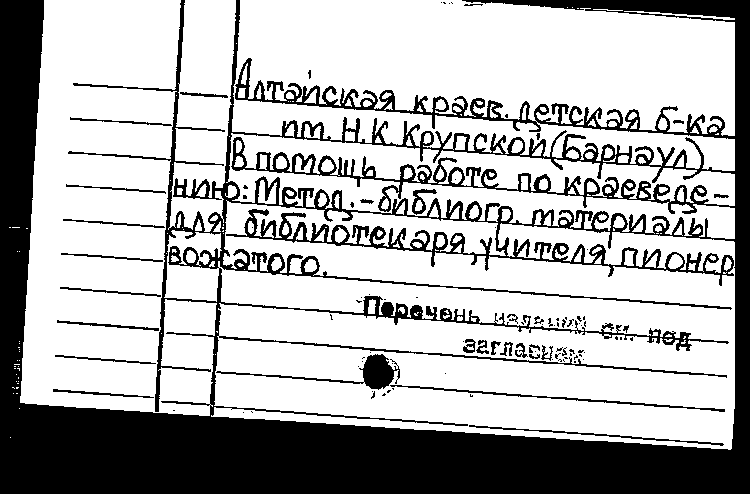 Алтайская краев. детская б-ка
им. Н.К. Крупской (Барнаул).
В помощь работе по краеведе-
нию: Метод.-библиогр. материалы
для библиотекаря, учителя, пионер
вожатого.
Перечень изданий см. под
заглавием